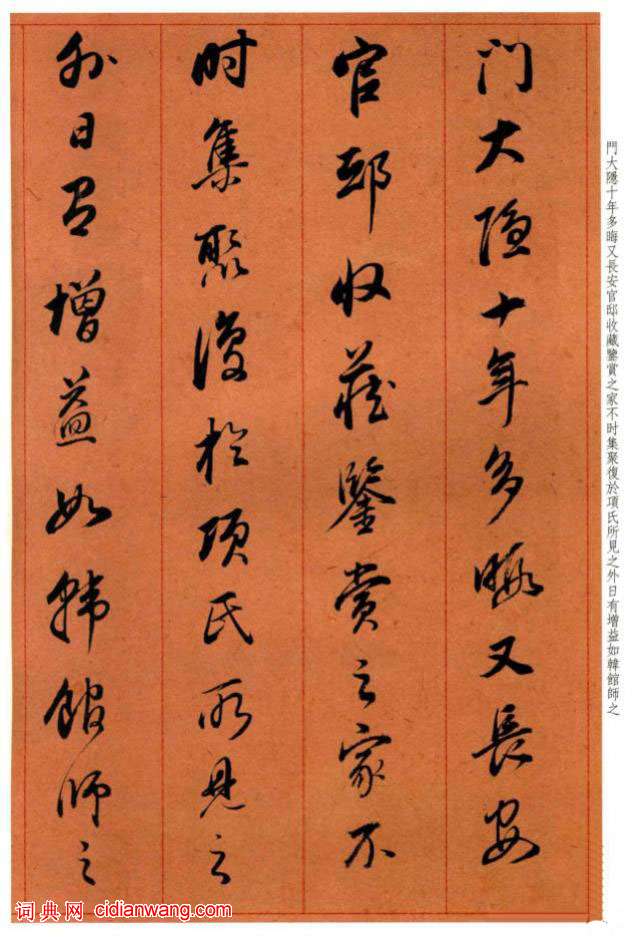 門大隱十年多暇又長安
官邸收藏鑒賞之家不
时集聚復於項氏所見之
外日有增益如韓館師之
門大隱十年多晦又長安官邸收藏鑒賞之家不时集聚復於項氏所見之外日有增益如韓館師之
词典网 cidianwang.com